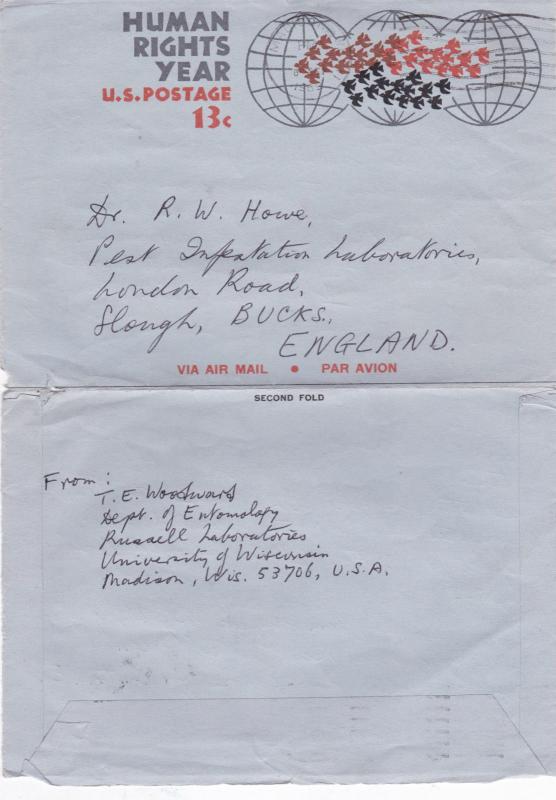 HUMAN
RIGHTS
YEAR
U.S. POSTAGE
13c
Dr. R. W. Howe,
Pest Infestation Laboratories,
London Road,
Slough, BUCKS.,
ENGLAND.
VIA AIR MAIL • PAR AVION
SECOND FOLD
From:
T. E. Woodward
Dept. of Entomology
Russell Laboratories
University of Wisconsin
Madison, Wis. 53706, U.S.A.